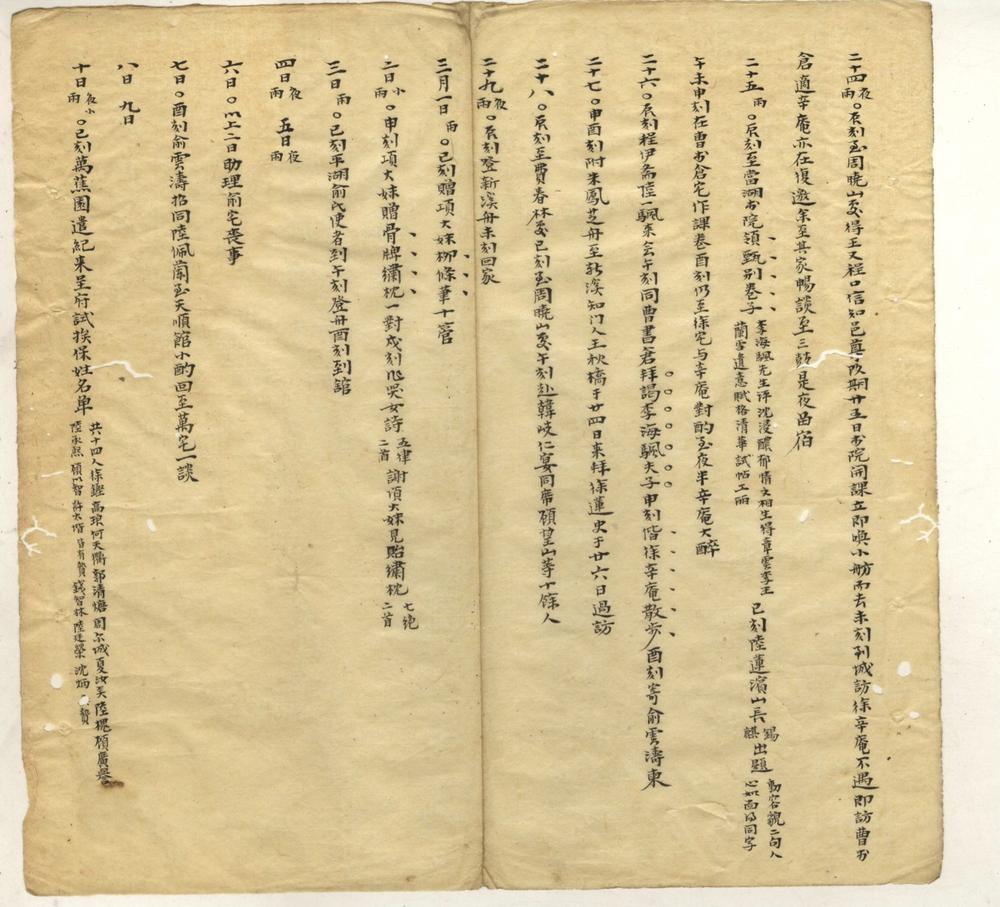 二十四夜雨。辰刻至周曉山處得王又程口信知邑尊改期廿五日書院開課立即喚小舫而去未刻到城訪徐辛庵不遇即訪曹書
倉適辛庵亦在復邀余至其家暢談至三鼓是夜留宿
二十五雨。辰刻至當湖書院領甄別卷子李海颿先生評沈浸醲郁情文相生將章雲李王蘭雪遺意賦格清華試帖工麗 已刻陸蓮濱山長錫麒出題動容貌二句人心如面得同字
午未申刻在曹書倉宅作課卷酉刻仍至徐宅与辛庵對酌至夜半辛庵大醉
二十六。辰刻程伊斋陸一颿來会午刻同曹書倉拜謁李海颿夫子申刻偕徐辛庵散步酉刻寄俞雲濤柬
二十七。申酉刻附朱鳳芝舟至新溪知门人王秋橋于廿四日來拜徐蓮史于廿六日過訪
二十八。辰刻至費春林處已刻至周曉山處午刻赴韓岐仁宴同席顧望山等十餘人
二十九夜雨。辰刻登新溪舟未刻回家
三月一日雨。已刻贈項大妹柳條筆十管
二日小雨。申刻項大妹贈骨牌繡枕一對戌刻作哭女詩五律二首 謝項大妹見貽繡枕七絕二首
三日雨。已刻平湖俞氏使者到午刻登舟酉刻到館
四日夜雨 五日夜雨
六日。以上二日助理俞宅喪事
七日。酉刻俞雲濤招同陸佩蘭至天順館小酌回至萬宅一談
八日 九日
十日夜小雨。已刻萬蕉園遣紀來呈府試挨保姓名单共十四人徐鑑高琅何天衢郭清塘周尔城夏汝夫陸槐顧廣譽陸永熙顧以智許大增皆有贄錢智林陸廷榮沈炳贄